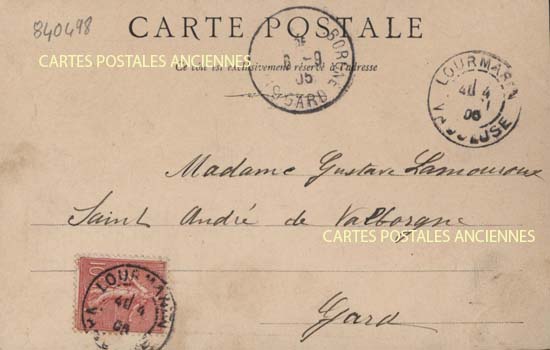 840498
CARTE POSTALE
CARTES POSTALES ANCIENNES
Ce côté est exclusivement réservé à l'adresse
BORGNE
6 - 9
05
GARD
LOURMARIN
4
VAUCLUSE
Madame Gustave Lamouroux
Saint André de Valborgne
CARTES POSTALES ANCIENNES
Gard
10
LOURMARIN
4